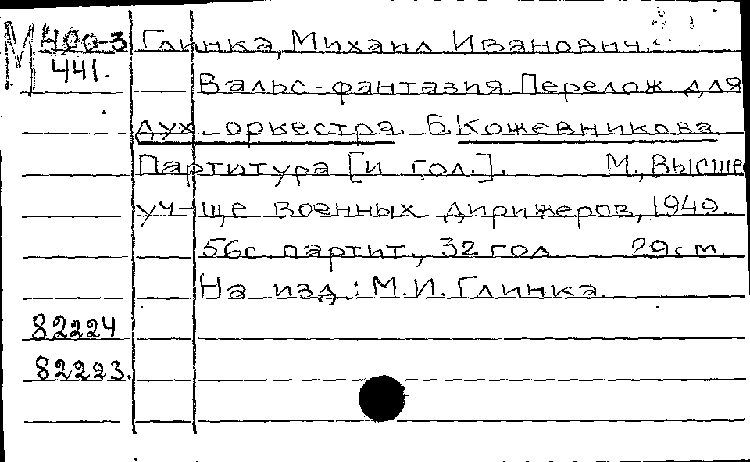 М 400-3 Глинка, Михаил Иванович.
441. Вальс-фантазия. Перелож. для
дух. оркестра Б. Кожевникова.
Партитура [и гол.]. М., Высшее
уч-ще военных дирижеров, 1949.
56с. партит., 32 гол. 29см.
На изд.: М.И. Глинка.
82224
82223.